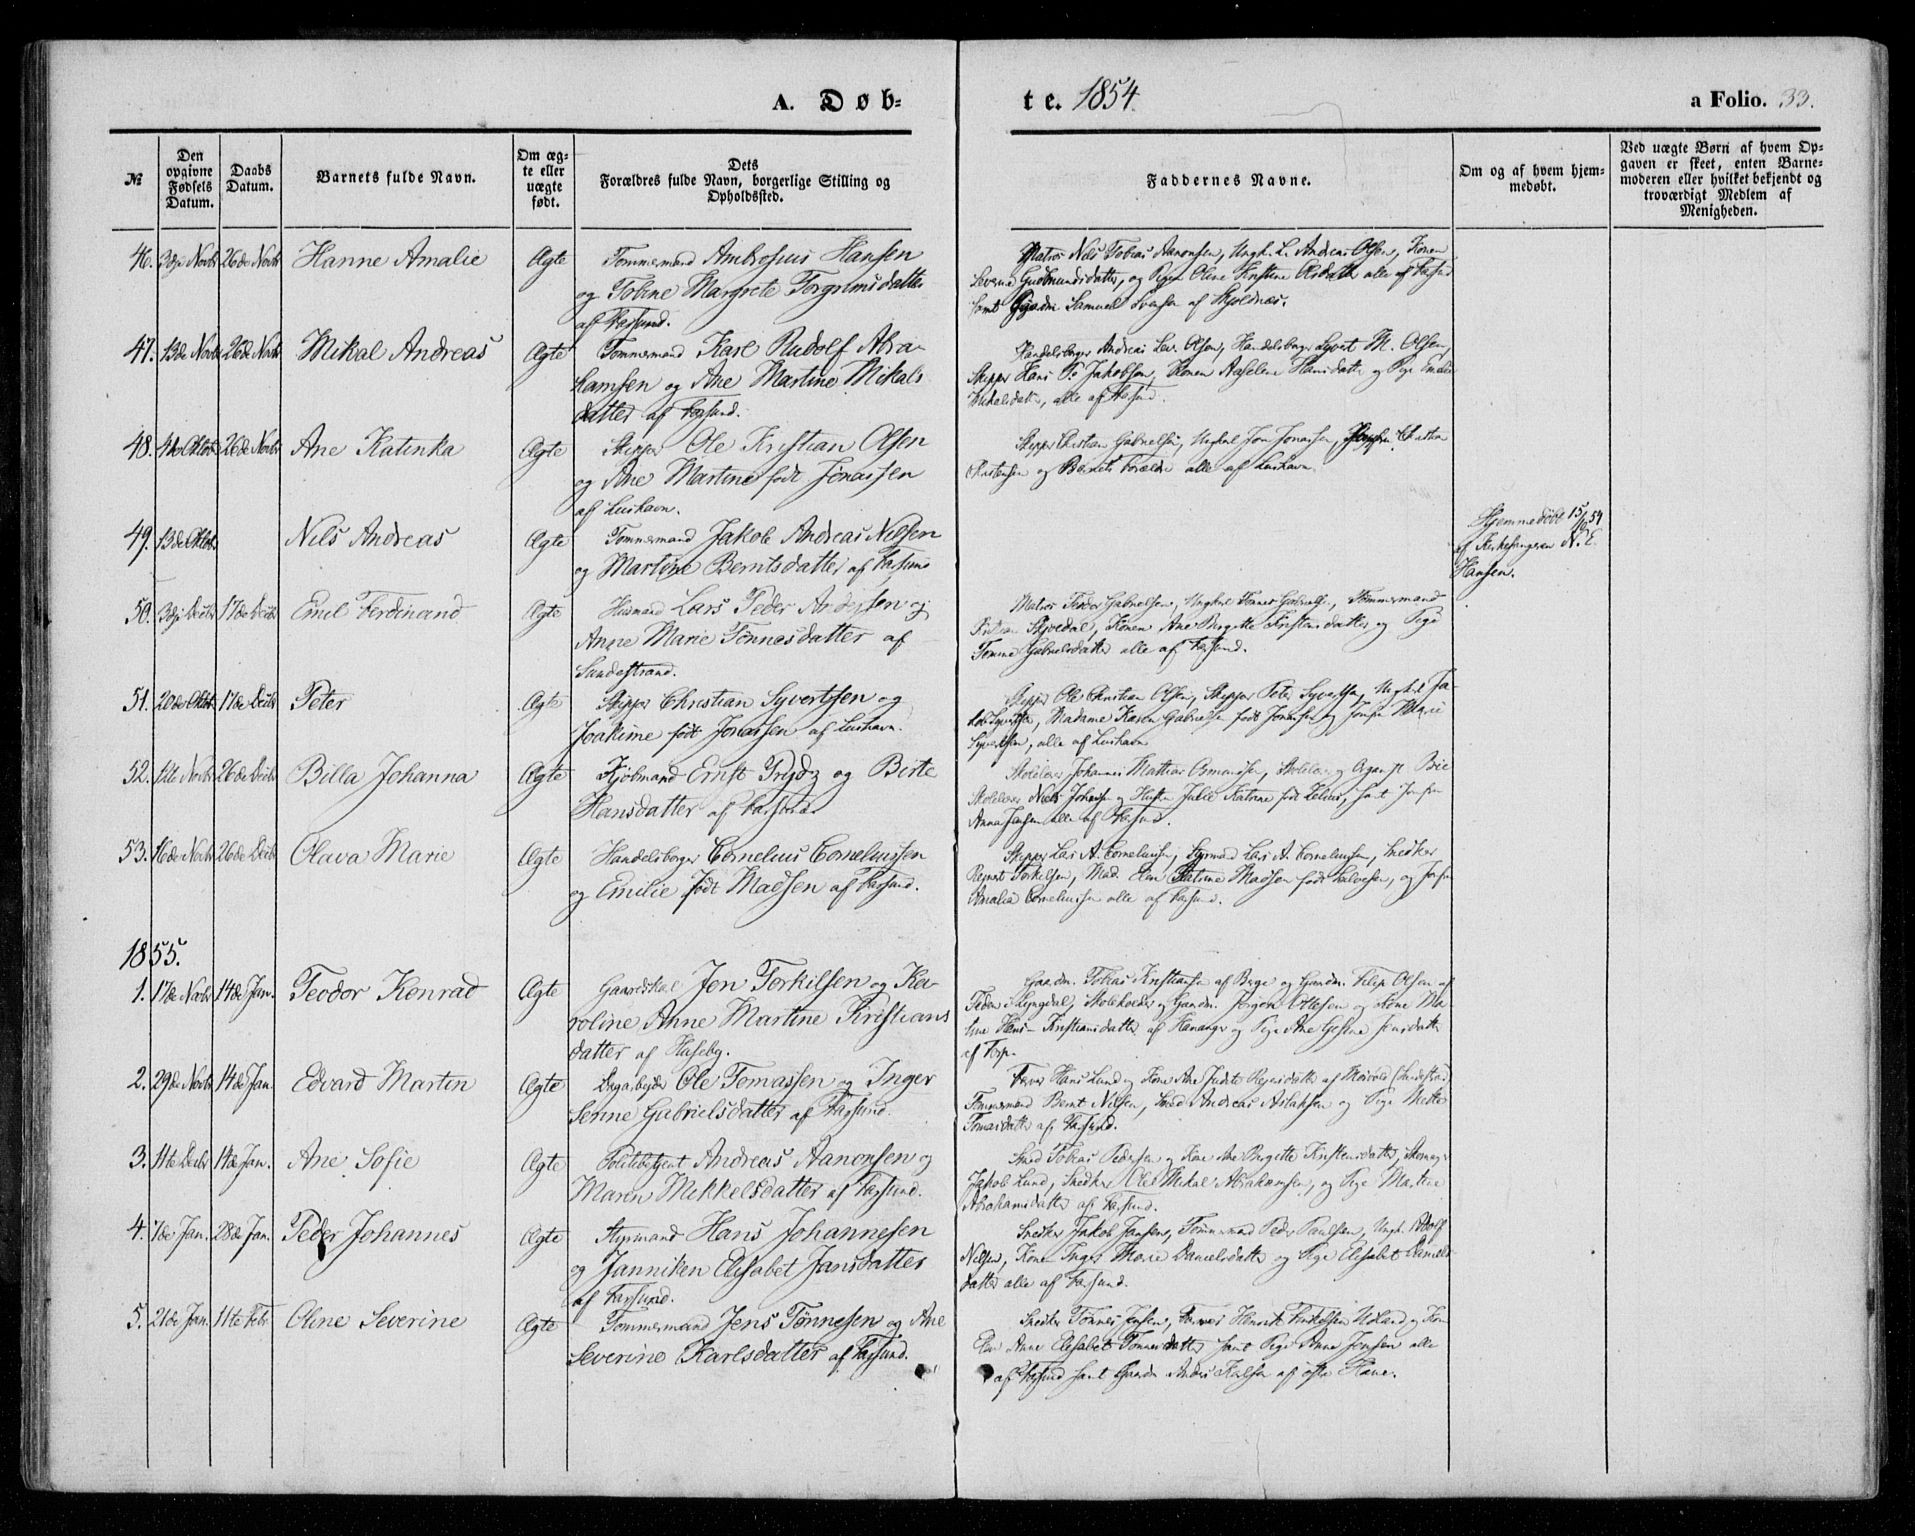 A. Døb-
te. 1854.
a Folio. 33.
№
Den opgivne Fødsels Datum.
Daabs Datum.
Barnets fulde Navn.
Om ægte eller uægte født.
Dets Forældres fulde Navn, borgerlige Stilling og Opholdssted.
Faddernes Navne.
Om og af hvem hjemmedøbt.
Ved uægte Børn af hvem Opgaven er skeet, enten Barnemoderen eller hvilket bekjendt og troværdigt Medlem af Menigheden.
46. 3die Novbr 26de Novbr Hanne Amalie Ægte Tømmermand Ambrosius Hansen
og Tobine Margrete Torgrimsdatter
af Farsund.
Matros Nils Tobias Aanonsen, Ungk. L. Andreas Olsen, Konen
Gudmundsdatter, og Pigen Olene Kristine alle af Farsund
samt Samuel Svensen af Skjoldnæs.
47. 13de Novbr 26de Novbr Mikal Andreas Ægte Tømmermand Karl Rudolf Abra-
hamsen og Ane Martine Mikals
datter af Farsund.
Handelsborger Andreas Olsen, Handelsborger Syvert M. Olsen,
Skipper Hans Jakobsen, Konen Aaselene Hansdatter og Pige
Mikalsdatter, alle af Farsund.
48. 26de Novbr Ane Katinka Ægte Skipper Ole Kristian Olsen
og Ane Martine født Jonassen
af Lushavn.
Skipper Christian Gabrielsen, Ungkal Jon Jonassen,
og Barnets Forældre alle af Lushavn.
49. 13de Oktbr Nils Andreas Ægte Tømmermand Jakob Andreas Nilsen
og Martine Berntsdatter af Farsund
Hjemmedøbt 15/10 54
af Kirkesangeren N. E.
Hansen.
50. 3die Decbr 17de Decbr Emil Ferdinand Ægte Husmand Lars Peder Andersen og
Anne Marie Tønnesdatter af
Sundestrand.
Matros Gabrielsen, Ungkal Tønnes Gabrielsen, Tømmermand
Skjoldal, Konen Ane Birgitte Kristensdatter og Pige
Gabrielsdatter alle af Farsund.
51. 20de Oktbr 17de Decbr Peter Ægte Skipper Christian Syvertsen og
Joakime født Jonassen af Lushavn.
Skipper Ole Christian Olsen, Skipper Peter Syvertsen, Ungkal Ja-
kob Syvertsen, Madame Karen Gabrielsen født Jonassen og Jomfru Marie
Syvertsen, alle af Lushavn
52. 26de Decbr Billa Johanna Ægte Kjøbmand Ernst Trydz og Birte
Hansdatter af Farsund
Skolelærer Johannes Mathias Osmundsen, og
Skolelærer Niels Johnsen og Hustru Julie Katrine født samt Jomfru
Anna alle af Farsund.
53. 16de Novbr 26de Decbr Olava Marie Ægte Handelsborger Cornelius Corneliussen
og Emilie født Madsen af Farsund.
Skipper Lars A. Corneliussen, Lars A. Corneliussen, Snedker
Torkelsen, Mad. Elen Katrine Madsen født Halvesen, og Jomfru
Amalia Corneliussen alle af Farsund.
1855.
1. 17de Novbr 14de Jan. Teodor Konrad Ægte Gaardskal Jon Torkilsen og Ka-
roline Anne Martine Kristians
datter af Haseby.
Gaardm. Tobias Kristiansen af Berge og Gaardm. Filip Olsen af
i Lyngdal, Skoleholder og Gaardm. Jørgen og Kone Ma-
Kristiansdatter af Hananger og Pige Ane Gesine
af
2. 29de Novbr 14de Jan. Edvard Martin Ægte Dagarbejder Ole Tomassen og Inger
Senne Gabrielsdatter af Farsund.
Farver Hans Lund og Kone Ane Judite af
Tømmermand Bernt Nilsen, Smed Andreas Aslaksen og Pige Mette
Tomasdatter af Farsund.
3. 11te Decbr 14de Jan. Ane Sofie Ægte Politibetjent Andreas Aanonsen og
Maren Mikkelsdatter af Farsund.
Smed Tobias Pedersen og Kone Ane Birgitte Kristensdatter, Skomager
Jakob Lund, Snedker Ole Mikal Abrahamsen, og Pige Martine
Abrahamsdatter af Farsund.
4. 7de Jan. 28de Jan. Peder Johannes Ægte Styrmand Hans Johannesen
og Janniken Elisabet Jansdatter
af Farsund.
Snedker Jakob Jansen, Tømmermand Peder Paulsen, Ungk. Adolf
Nilsen, Kone Inger Marie Danielsdatter og Pige Elisabet Daniels
datter alle af Farsund.
5. 21de Jan. 11te Febr Oline Severine Ægte Tømmermand Jens Tønnesen og Ane
Severine Karlsdatter af Farsund.
Snedker Tønnes Jensen, Farver Henrik og Kone
Ane Elisabet Tønnesdatter samt Pige Anne Jonsen alle
af Farsund samt Gaardm Anders af